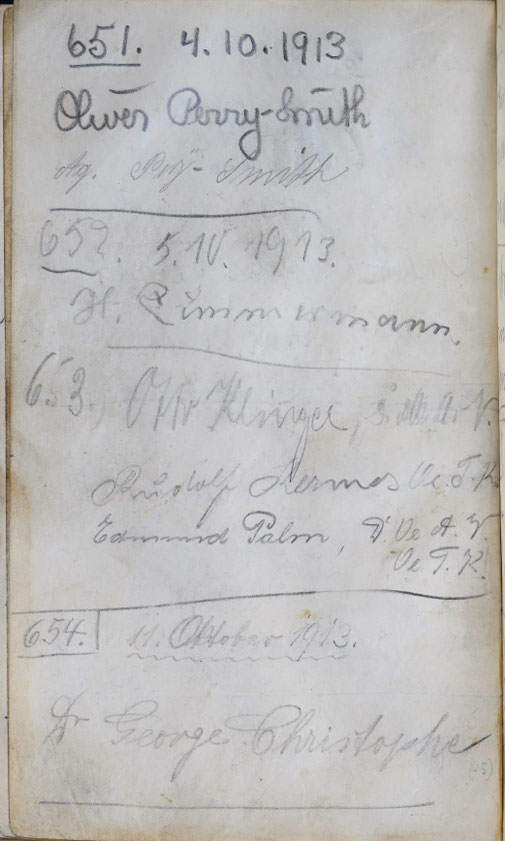 651. 4.10.1913
Oliver Perry-Smith
Ag. Smith
652. 5.IV. 1913.
H. Zimmermann.
653. Otto Klinger, S. A. V.
Rudolf Hermes Oe. T. K.
Edmund Palm, D. Oe A. V.
Oe T. K.
654. 11. Oktober 1913.
Dr George Christophe